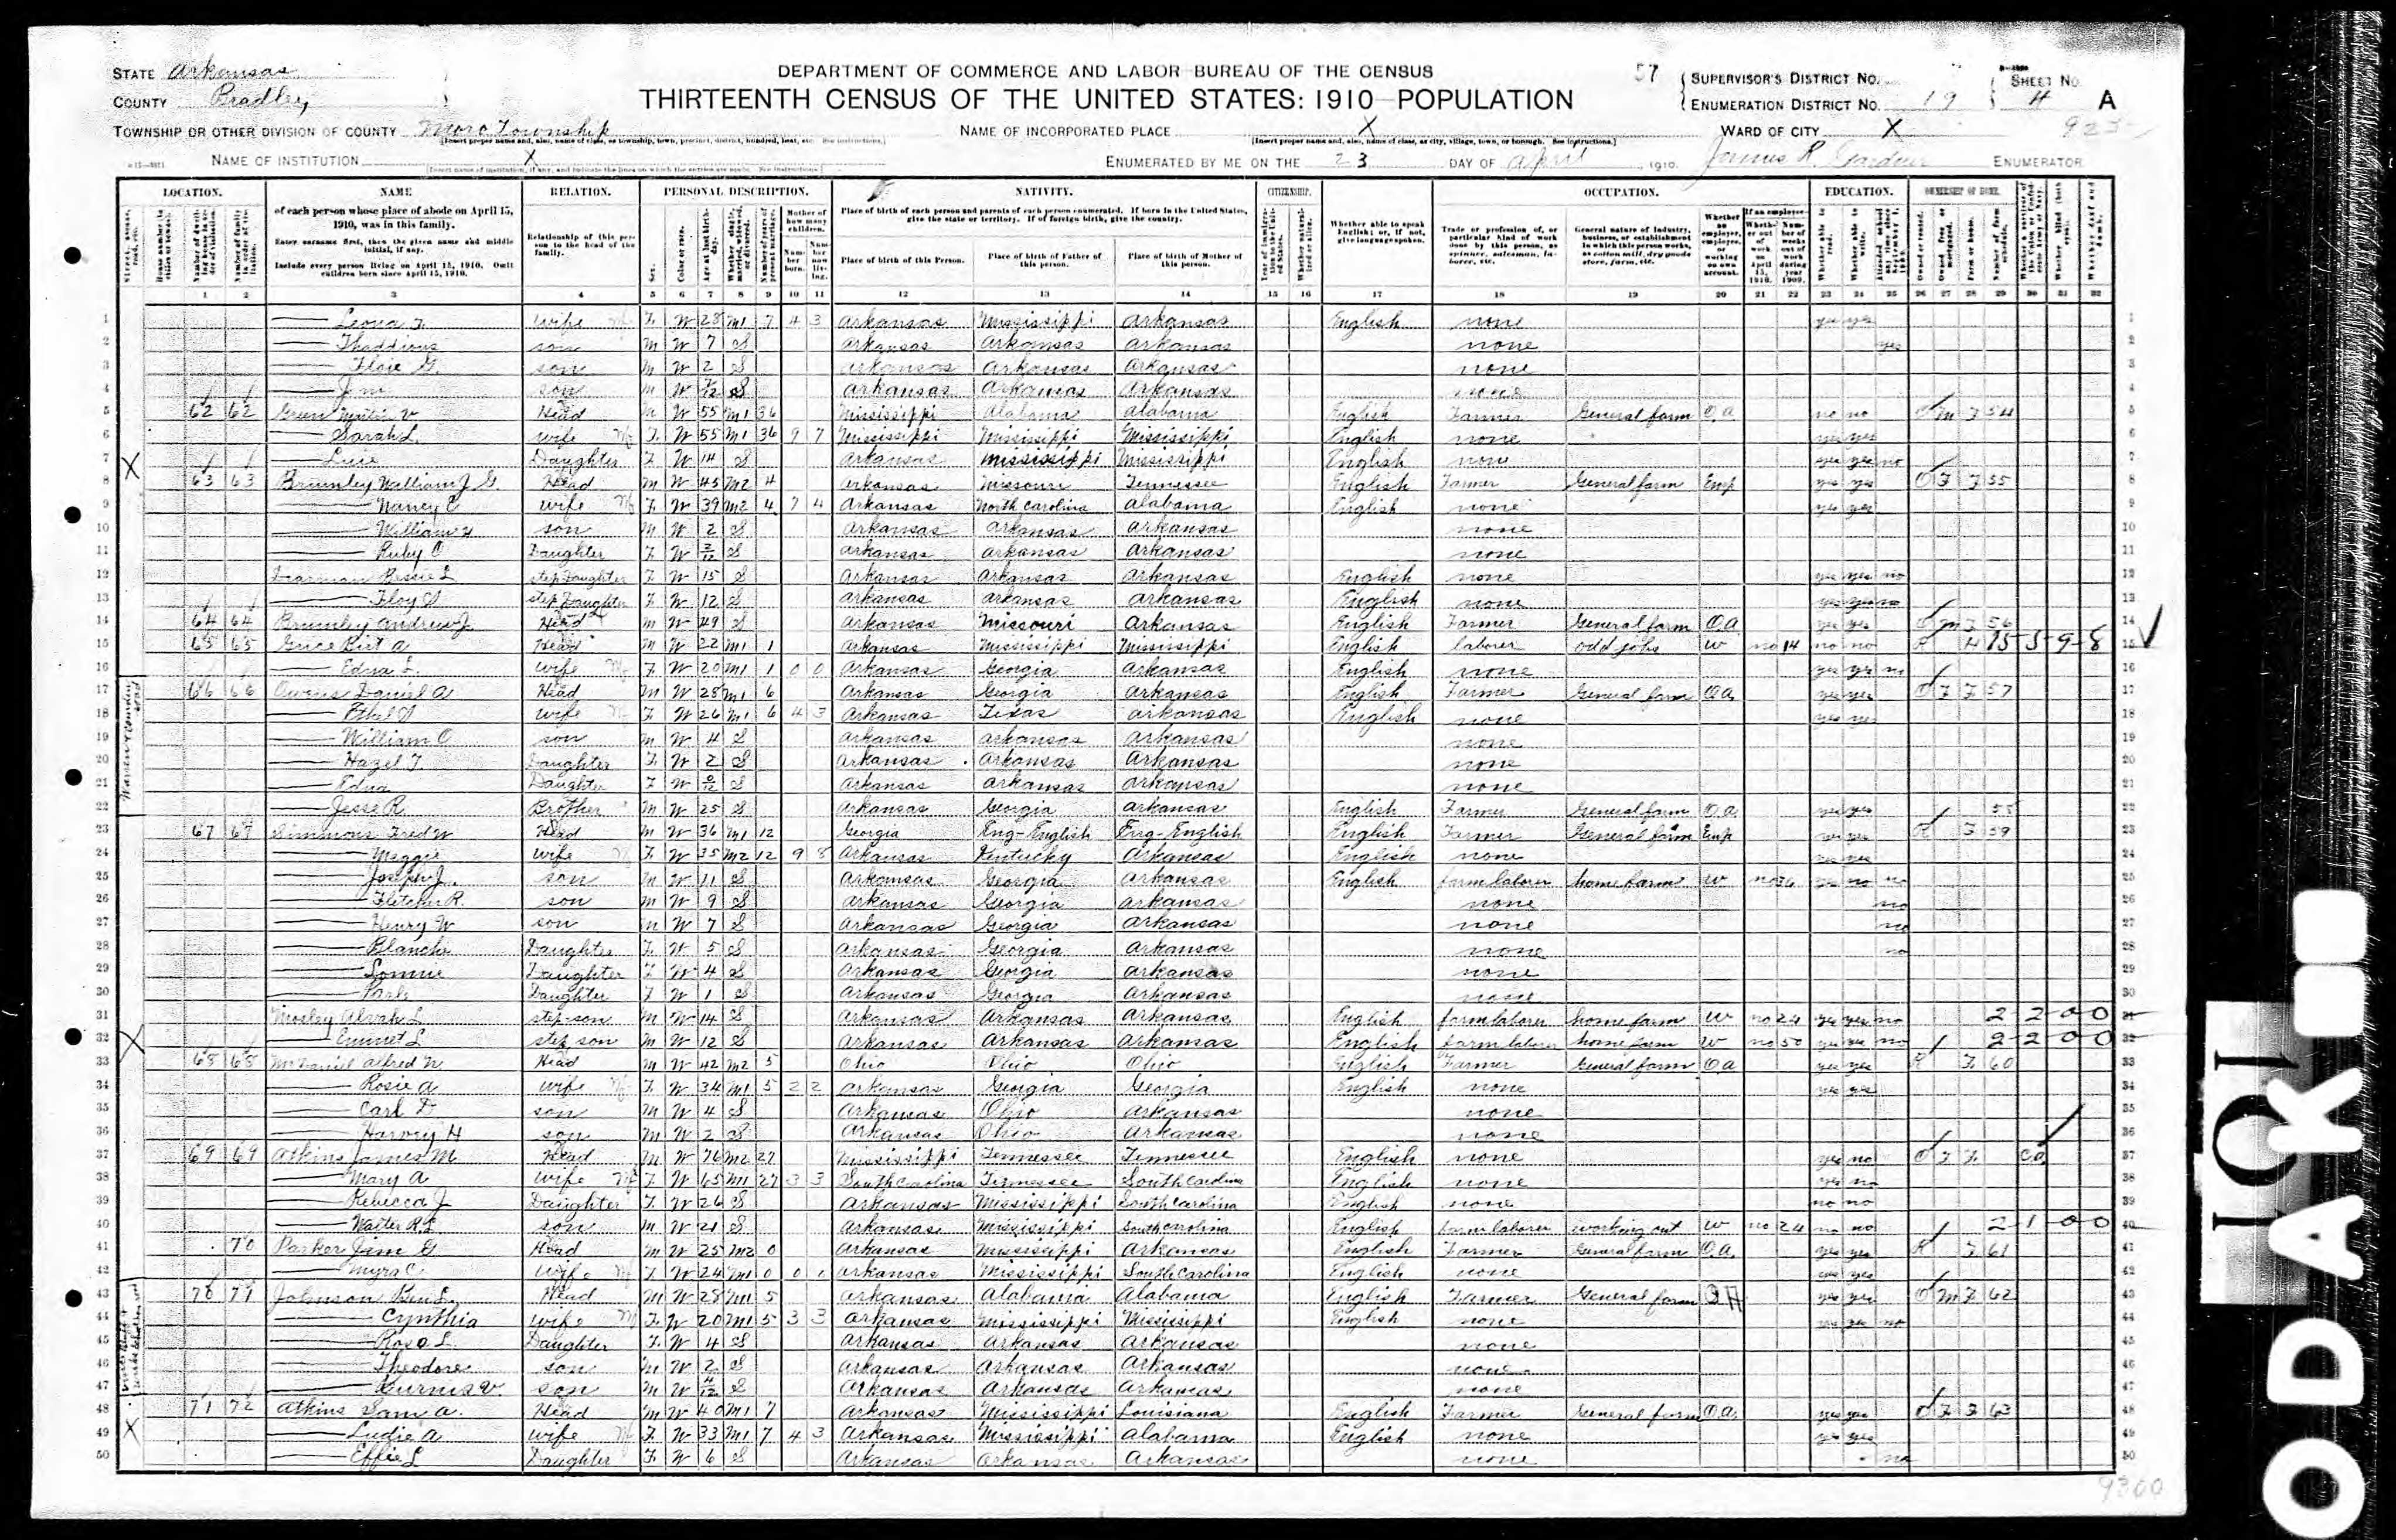 DEPARTMENT OF COMMERCE AND LABOR-BUREAU OF THE CENSUS
THIRTEENTH CENSUS OF THE UNITED STATES: 1910-POPULATION
STATE Arkansas
COUNTY Bradley
TOWNSHIP OR OTHER DIVISION OF COUNTY Moro Township
NAME OF INCORPORATED PLACE X
NAME OF INSTITUTION X
ENUMERATED BY ME ON THE 23 DAY OF April, 1910. James R. Gardner ENUMERATOR
57
SUPERVISOR'S DISTRICT NO.
ENUMERATION DISTRICT NO. 19
SHEET NO. 4 A
WARD OF CITY X
LOCATION. NAME RELATION. PERSONAL DESCRIPTION. NATIVITY. CITIZENSHIP. OCCUPATION. EDUCATION. OWNERSHIP OF HOME.
of each person whose place of abode on April 15, 1910, was in this family.
Enter surname first, then the given name and middle initial, if any.
Include every person living on April 15, 1910. Omit children born since April 15, 1910.
Relationship of this person to the head of the family.
Place of birth of each person and parents of each person enumerated. If born in the United States, give the state or territory. If of foreign birth, give the country.
Place of birth of this Person. Place of birth of Father of this person. Place of birth of Mother of this person.
Whether able to speak English; or, if not, give language spoken.
1 2 3 4 5 6 7 8 9 10 11 12 13 14 15 16 17 18 19 20 21 22 23 24 25 26 27 28 29 30 31 32
1 Leona F. wife F W 28 M1 7 4 3 Arkansas Mississippi Arkansas English none yes yes
2 Thaddious son M W 7 S Arkansas Arkansas Arkansas none yes
3 son M W 2 S Arkansas Arkansas Arkansas none
4 Jim son M W S Arkansas Arkansas Arkansas none
5 62 62 Green V Head M W 55 M1 36 Mississippi Alabama Alabama English Farmer General farm O.A. no no O M F 54
6 Sarah L. wife F W 55 M1 36 9 7 Mississippi Mississippi Mississippi English none yes yes
7 Daughter F W 14 S Arkansas Mississippi Mississippi English none yes yes no
8 63 63 Brumley William J. G. Head M W 45 M2 4 Arkansas Missouri Tennessee English Farmer General farm Emp yes yes O F F 55
9 Nancy C wife F W 39 M2 4 7 4 Arkansas North Carolina Alabama English none yes yes
10 William H son M W 2 S Arkansas Arkansas Arkansas none
11 Ruby C Daughter F W 2/12 S Arkansas Arkansas Arkansas none
12 Bessie L step Daughter F W 15 S Arkansas Arkansas Arkansas English none yes yes no
13 Floy step Daughter F W 12 S Arkansas Arkansas Arkansas English none yes yes no
14 64 64 Brumley Andrew J Head M W 49 S Arkansas Missouri Arkansas English Farmer General farm O.A. yes yes O M F 56
15 65 65 Grice Birt A Head M W 22 M1 1 Arkansas Mississippi Mississippi English laborer odd jobs W no 14 no no R H 15-5-9-8
16 Edna L. wife F W 20 M1 1 0 0 Arkansas Georgia Arkansas English none yes yes no
17 66 66 Owens Daniel A Head M W 28 M1 6 Arkansas Georgia Arkansas English Farmer General farm O.A. yes yes O F F 57
18 Ethel wife F W 26 M1 6 4 3 Arkansas Texas Arkansas English none yes yes
19 William C son M W 4 S Arkansas Arkansas Arkansas none
20 Hazel F. Daughter F W 2 S Arkansas Arkansas Arkansas none
21 Edna Daughter F W 0/12 S Arkansas Arkansas Arkansas none
22 Jesse R. Brother M W 25 S Arkansas Georgia Arkansas English Farmer General farm O.A. yes yes
23 67 67 Simmons Fred W Head M W 36 M1 12 Georgia Eng-English Eng-English English Farmer General farm Emp yes yes R F 59
24 Maggie wife F W 35 M2 12 9 8 Arkansas Kentucky Arkansas English none yes yes
25 Joseph J. son M W 11 S Arkansas Georgia Arkansas English farm laborer home farm W no 36 yes no no
26 Fletcher R. son M W 9 S Arkansas Georgia Arkansas none no
27 Henry W son M W 7 S Arkansas Georgia Arkansas none no
28 Blanche Daughter F W 5 S Arkansas Georgia Arkansas none no
29 Daughter F W 4 S Arkansas Georgia Arkansas none
30 Daughter F W 1 S Arkansas Georgia Arkansas none
31 Mosley Alvah L step-son M W 14 S Arkansas Arkansas Arkansas English farm laborer home farm W no 24 yes yes no 2-2-0-0
32 Emmet L step son M W 12 S Arkansas Arkansas Arkansas English farm laborer home farm W no 50 yes yes no 2-2-0-0
33 68 68 McDaniel Alfred N Head M W 42 M2 5 Ohio Ohio Ohio English Farmer General farm O A yes yes R F 60
34 Rosie A wife F W 34 M1 5 2 2 Arkansas Georgia Georgia English none yes yes
35 Carl D son M W 4 S Arkansas Ohio Arkansas none
36 Harvey H son M W 2 S Arkansas Ohio Arkansas none
37 69 69 Atkins James M Head M W 76 M2 27 Mississippi Tennessee Tennessee English none yes no O F F CA
38 Mary A wife F W 65 M1 27 3 3 South Carolina Tennessee South Carolina English none yes no
39 Rebecca J Daughter F W 26 S Arkansas Mississippi South Carolina English none no no
40 Walter R L son M W 21 S Arkansas Mississippi South Carolina English farm laborer working out W no 24 no no 2-1-0-0
41 70 Parker Jim G Head M W 25 M2 0 Arkansas Mississippi Arkansas English Farmer General farm O.A. yes yes R F 61
42 Myra C. wife F W 24 M1 0 0 Arkansas Mississippi South Carolina English none yes yes
43 70 71 Johnson Ben L. Head M W 28 M1 5 Arkansas Alabama Alabama English Farmer General farm OA yes yes O M F 62
44 Cynthia wife F W 20 M1 5 3 3 Arkansas Mississippi Mississippi English none yes yes no
45 Rosa L. Daughter F W 4 S Arkansas Arkansas Arkansas none
46 Theodore son M W 2 S Arkansas Arkansas Arkansas none
47 son M W 4/12 S Arkansas Arkansas Arkansas none
48 71 72 Atkins Sam A. Head M W 40 M1 7 Arkansas Mississippi Louisiana English Farmer General farm O.A. yes yes O F F 63
49 Ludie A wife F W 33 M1 7 4 3 Arkansas Mississippi Alabama English none yes yes
50 Effie L Daughter F W 6 S Arkansas Arkansas Arkansas none no
9300
ODAK